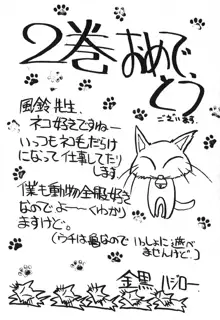 2巻おめで、
とう
ございます。
風鈴先生、
ネコ好きですねー
いっつもネコもだらけ
になって仕事してたり
します
僕も動物全般好き
なのでよーーくわかり
ますけど。
(ウチは亀なのでいっしょに遊べ
ませんけど。)
金黒ハジロー